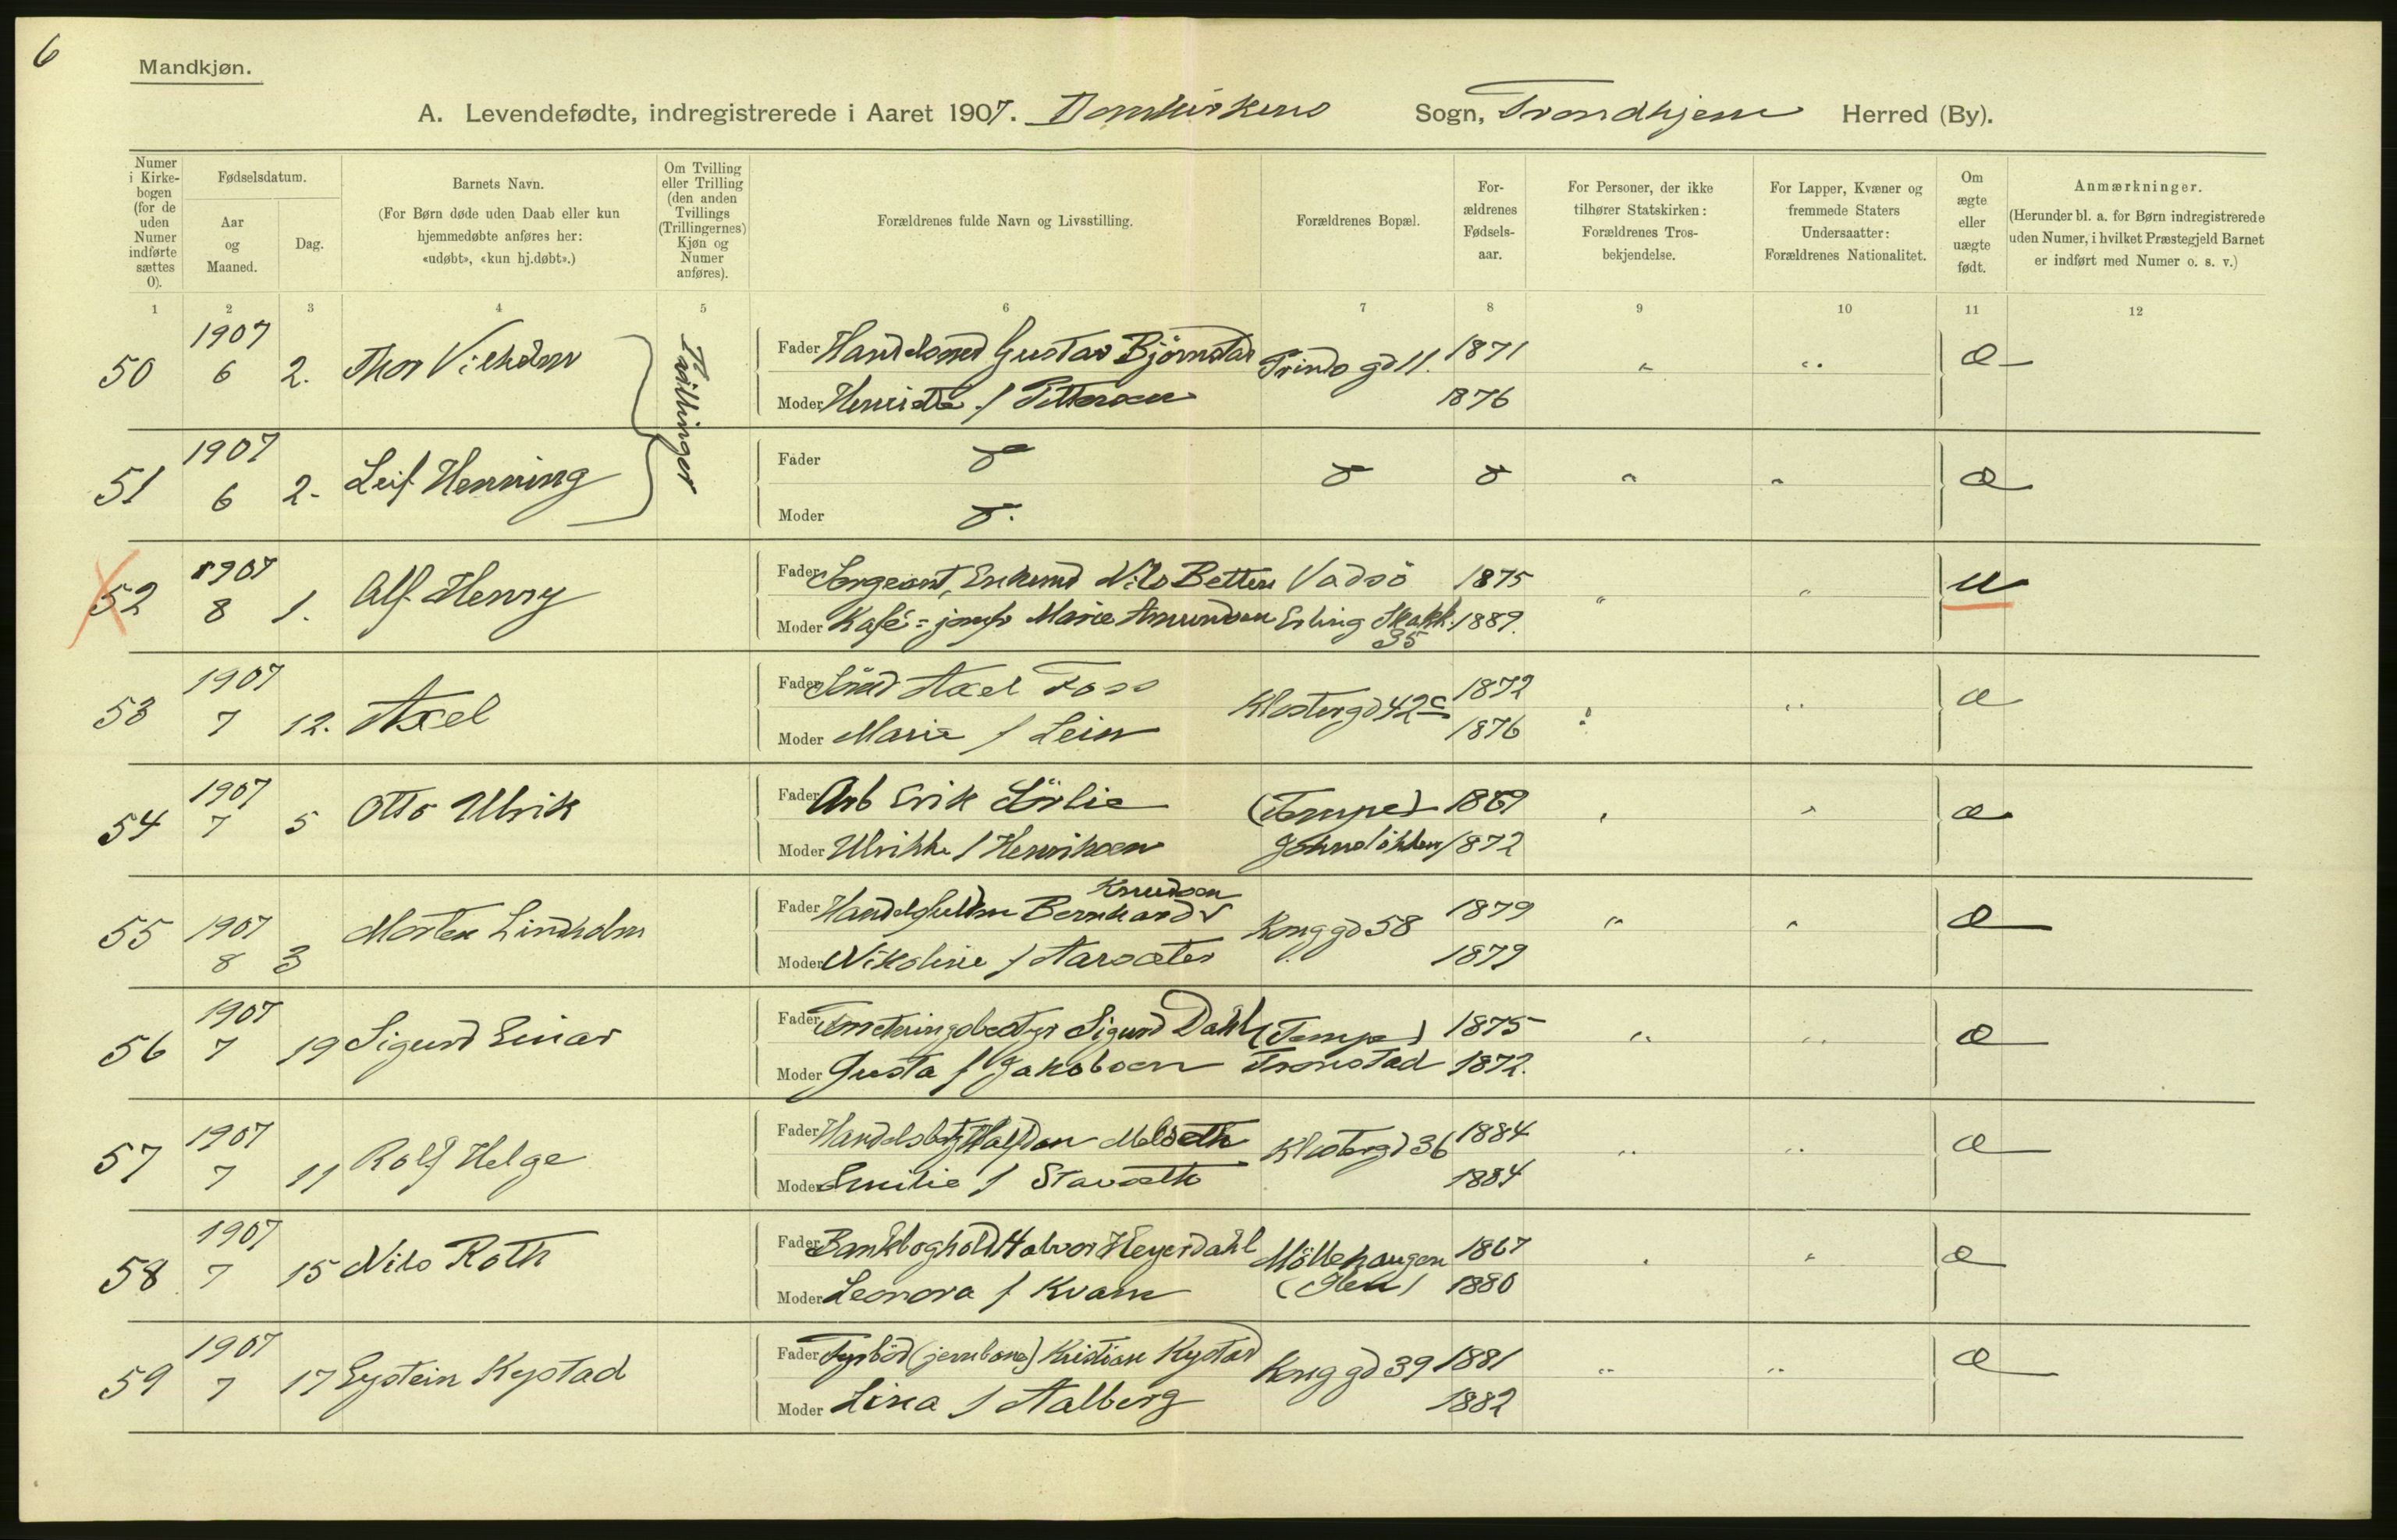 6
Mandkjøn.
A. Levendefødte, indregistrerede i Aaret 1907. Domkirkens Sogn, Trondhjem Herred (By).
Numer i Kirkebogen (for de uden Numer indførte sættes 0).
Fødselsdatum.
Aar og Maaned.
Dag.
Barnets Navn.
(For Børn døde uden Daab eller kun hjemmedøbte anføres her: «udøbt», «kun hj.døbt».)
Om Tvilling eller Trilling (den anden Tvillings (Trillingernes) Kjøn og Numer anføres).
Forældrenes fulde Navn og Livsstilling.
Forældrenes Bopæl.
Forældrenes Fødselsaar.
For Personer, der ikke tilhører Statskirken: Forældrenes Trosbekjendelse.
For Lapper, Kvæner og fremmede Staters Undersaatter: Forældrenes Nationalitet.
Om ægte eller uægte født.
Anmærkninger.
(Herunder bl. a. for Børn indregistrerede uden Numer, i hvilket Præstegjeld Barnet er indført med Numer o. s. v.)
1 2 3 4 5 6 7 8 9 10 11 12
50 1907 6 2. Thor Vilhelm Tvillinger
Fader Handelsmd Gustav Björnstad Prinds gd 11. 1871 " " æ
Moder Henriette f Pettersen 1876
51 1907 6 2- Leif Henning
Fader " " æ
Moder
52 1907 8 1. Alf Henry
Fader Sergeant, Enkemd Nils Betten Vadsö 1875 " " u
Moder Kafé=jomfr Marie Amundsen Erling Skakk. 35 1889.
53 1907 7 12. Axel
Fader Axel Foss Klostergd 42c 1872 " " æ
Moder Marie f Lein 1876
54 1907 7 5 Otto Ulrik
Fader Arb Erik Sörlie (Tempe) 1869 " " æ
Moder Ulrikke f Henriksen Johnslökken 1872
55 1907 8 3 Morten Lindholm
Fader Bernhard Knudsen Kong gd 58 1879 " " æ
Moder Nikoline f Aarsæter 1879
56 1907 7 19 Sigurd Einar
Fader Sigurd Dahl (Tempe) 1875 " " æ
Moder Gusta f Jakobsen Tronstad 1872.
57 1907 7 11 Rolf Helge
Fader Handelsbetj Halfdan Melseth Klostergd 36 1884 " " æ
Moder Emilie f Stavseth 1884
58 1907 7 15 Nils Roth
Fader Bankboghold Halvor Heyerdahl Möllehaugen 1867 " " æ
Moder Leonora f Kvam (Ilen) 1880
59 1907 7 17 Eystein Kystad
Fader Fyrböd (jernbane) Kristian Kystad Kong gd 39 1881 " " æ
Moder Lina f Aalberg 1882